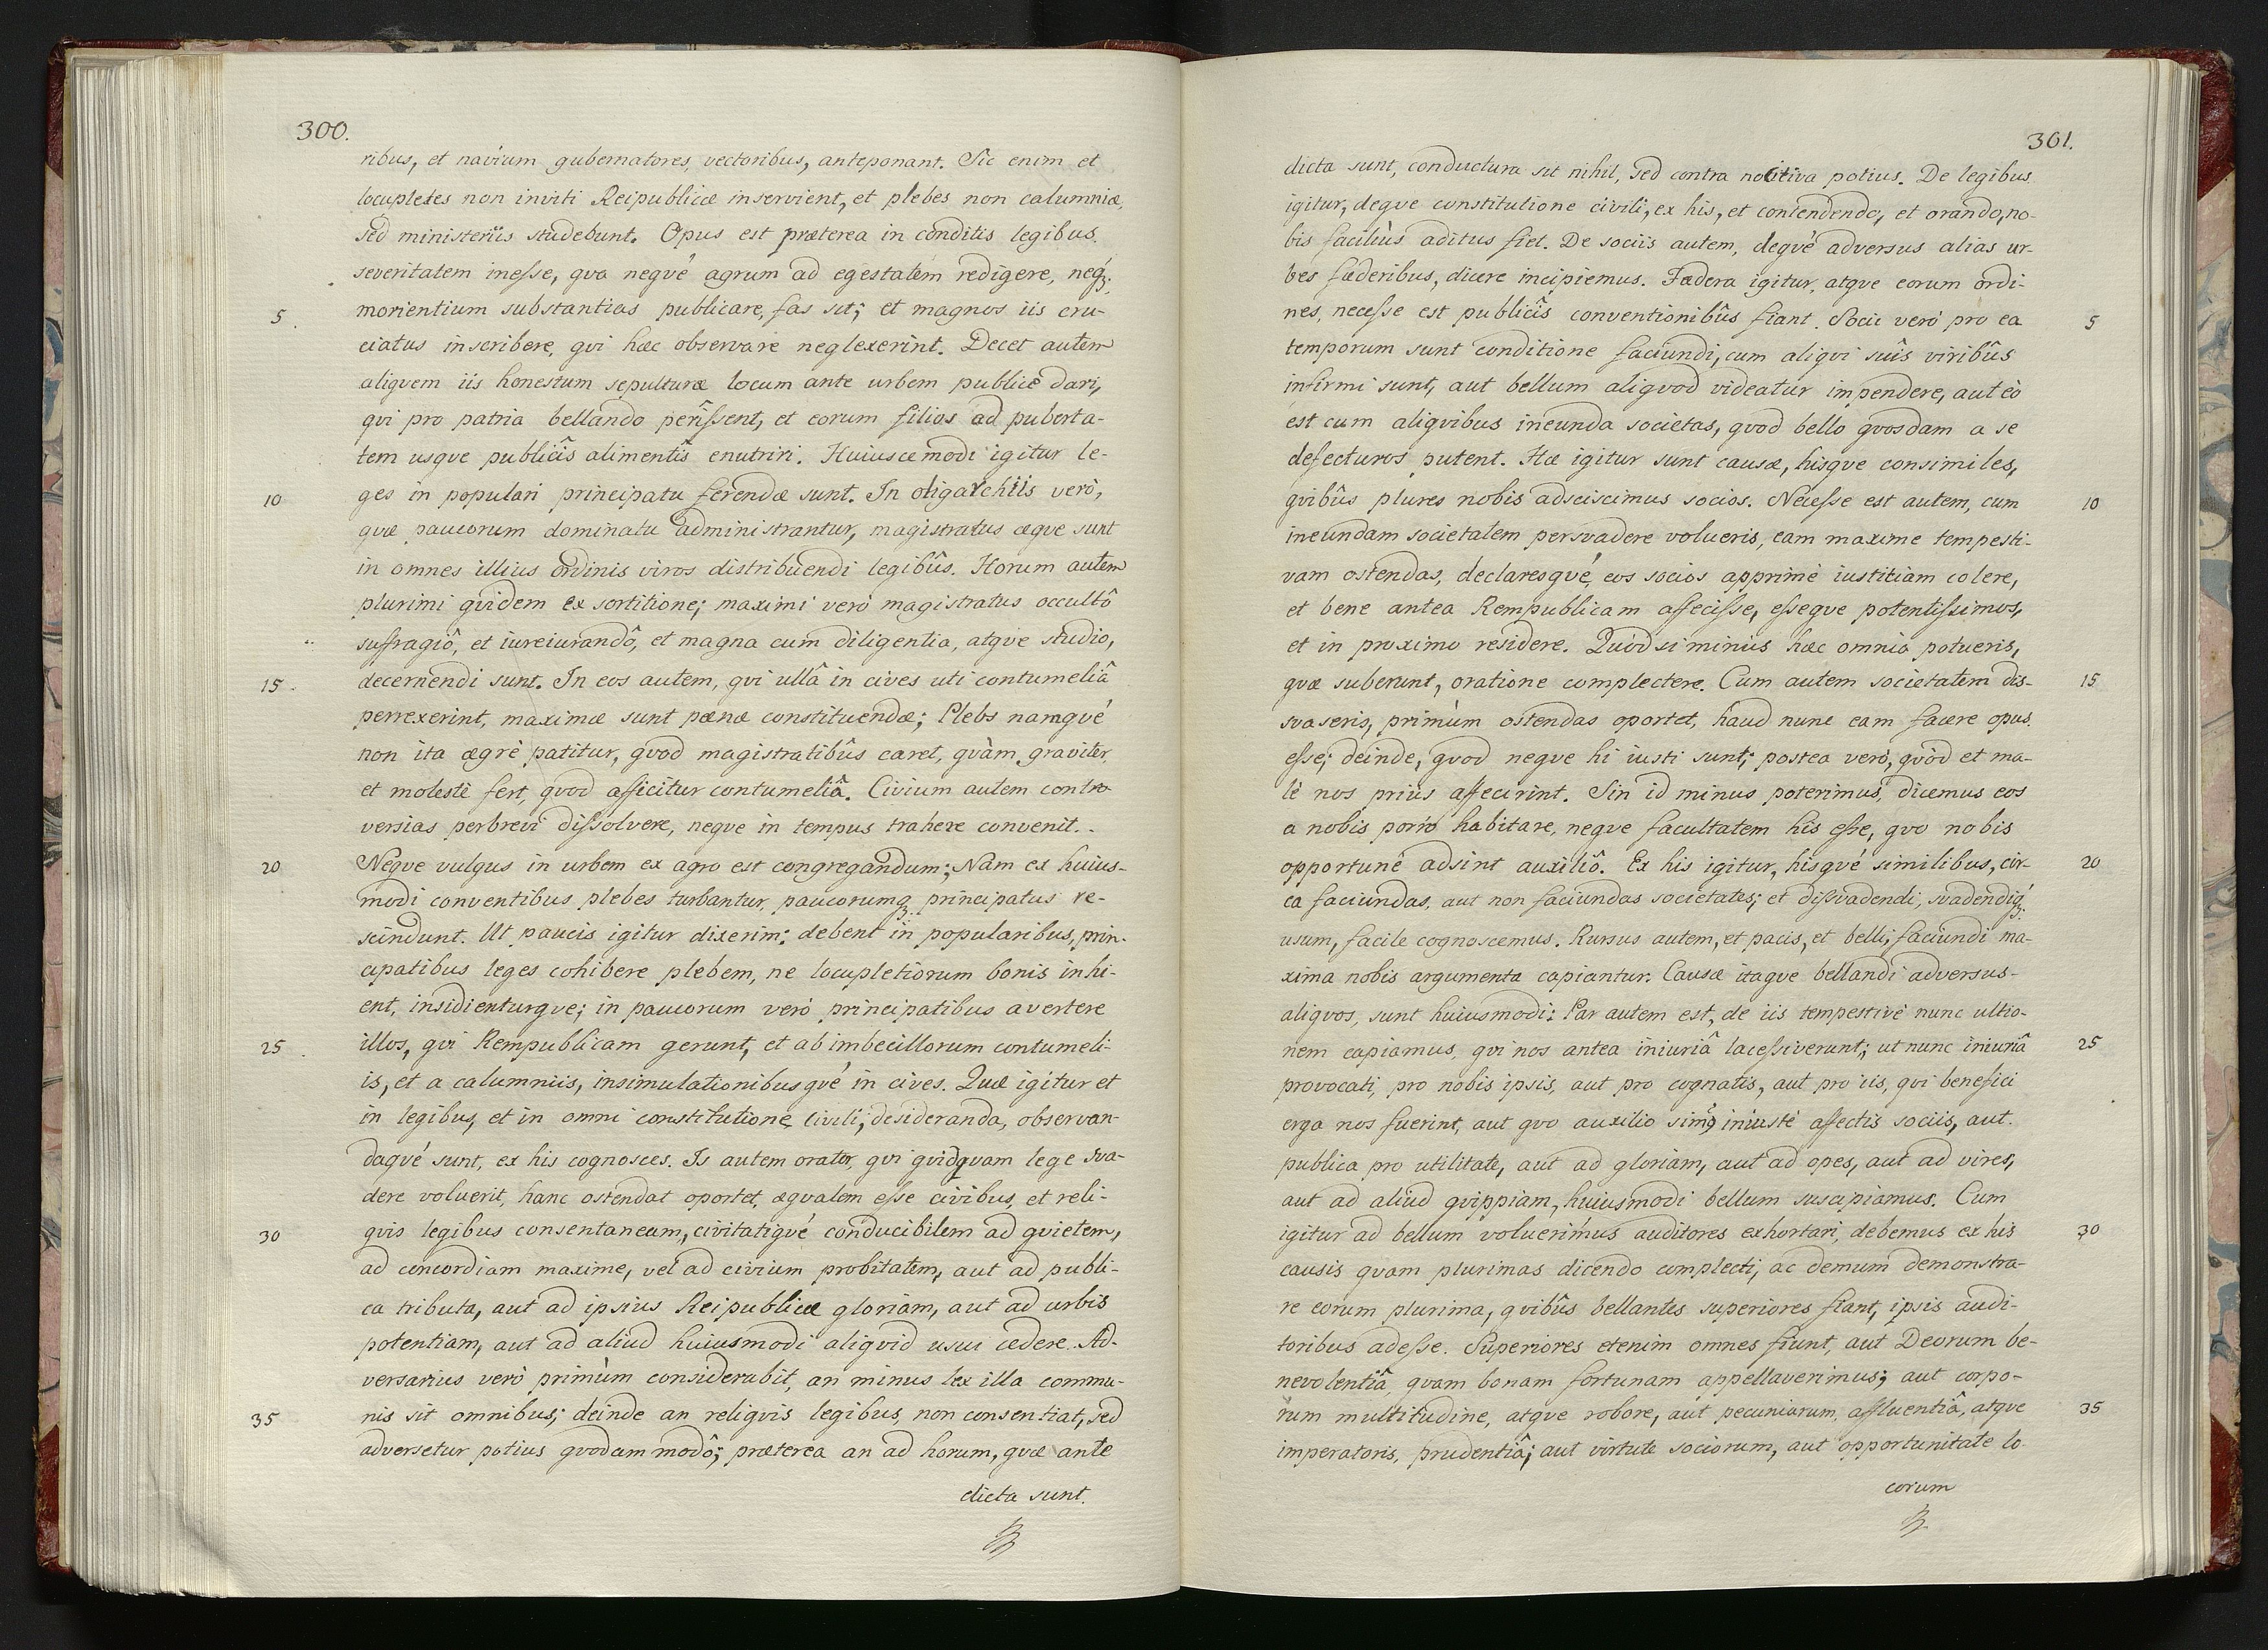 300.
ribus, et navium gubernatores, vectoribus, anteponant. Sic enim et
locupletes non inviti Reipublicæ inservient, et plebes non calumniæ,
sed ministeriis studebunt. Opus est præterea in conditis legibus
severitatem inesse, qva neqvé agrum ad egestatem redigere, neqꝫ
5. morientium substantias publicare, fas sit; et magnos iis cru-
ciatus inscribere, qvi hæc observare neglexerint. Decet autem
aliqvem iis honestum sepulturæ locum ante urbem publicè dari,
qvi pro patria bellando perîssent, et eorum filios ad puberta-
tem usqve publicîs alimentîs enutriri. Huiuscemodi igitur le-
10 ges in populari principatu ferendæ sunt. In oligarchiis verò,
qvæ paucorum dominatu administrantur, magistratus æqve sunt
in omnes illius ordinis viros distribuendi legibûs. Horum autem
plurimi qvidem ex sortitione; maximi verò magistratus occultô
suffragiô, et iureiurandô, et magna cum diligentia, atqve studio,
15. decernendi sunt. In eos autem, qvi ullâ in cives uti contumeliâ
perrexerint, maximæ sunt pænæ constituendæ; Plebs namqvé
non ita ægrè patitur, qvod magistratibûs caret, qvàm graviter,
et molestè fert, qvod afficitur contumeliâ. Civium autem contro
versias perbrevi dissolvere, neqve in tempus trahere convenit.
20 Neqve vulgus in urbem ex agro est congregandum; Nam ex huius-
modi conventibus plebes turbantur, paucorumqꝫ principatus re-
scindunt. Ut paucis igitur dixerim; debent in popularibus, prin-
cipatibus leges cohibere plebem, ne locupletiorum bonis inhi-
ent, insidienturqve; in paucorum verò principatibus avertere
25. illos, qvi Rempublicam gerunt, et ab imbecillorum contumeli-
is, et a calumniis, insimulationibusqvé in cives. Quæ igitur et
in legibus, et in omni constitutione civili, desideranda, observan-
daqvé sunt, ex his cognosces. Is autem orator, qvi qvidqvam lege sva-
dere voluerit, hanc ostendat oportet, æqvalem esse civibus, et reli-
30 qvis legibus consentaneam, civitatiqvé conducibilem ad qvietem,
ad concordiam maxime, vel ad civium probitatem, aut ad publi-
ca tributa, aut ad ipsius Reipublicæ gloriam, aut ad urbis
potentiam, aut ad aliud huiusmodi aliqvid usui cedere. Ad-
versarius verò primùm considerabit, an minus lex illa commu-
35 nis sit omnibus; deinde an reliqvis legibus non consentiat, sed
adversetur potius qvodam modô; præterea an ad horum, qvæ ante
dicta sunt.
301.
dicta sunt, conductura sit nihil, sed contra nocitiva potius. De legibus
igitur, deqve constitutione civili, ex his, et contendendo, et orando, no-
bis faciliùs aditus fiet. De sociis autem, deqvé adversus alias ur-
bes fæderibus, dicere incipiemus. Fædera igitur, atqve eorum ordi-
5 nes, necesse est publicîs conventionibûs fiant. Socii verò pro ea
temporum sunt conditione faciundi, cum aliqvi suîs viribûs
infirmi sunt, aut bellum aliqvod videatur impendere, aut eò
est cum aliqvibus ineunda societas, qvod bello qvosdam a se
defecturos putent. Hæ igitur sunt causæ, hisqve consimiles,
10 qvibûs plures nobis adsciscimus socios. Necesse est autem, cum
ineundam societatem persvadere volueris, eam maxime tempesti-
vam ostendas, declaresqvé, eos socios apprimè iustitiam colere,
et bene antea Rempublicam affecisse, esseqve potentissimos,
et in proximo residere. Quòd si minùs hæc omnia potueris,
15 qvæ suberunt, oratione complectere. Cum autem societatem dis-
svaseris, primùm ostendas oportet, haud nunc eam facere opus
esse; deinde, qvod neqve hi iusti sunt; postea verò, qvòd et ma-
lè nos priùs affecerint. Sin id minus poterimus, dicemus eos
a nobis porrò habitare, neqve facultatem his esse, qvo nobis
20 opportunè adsint auxiliô. Ex his igitur, hisqvé similibus, cir-
ca faciundas, aut non faciundas societates; et dissvadendi, svadendiqꝫ
usum, facile cognoscemus. Rursus autem, et pacis, et belli, faciundi ma-
xima nobis argumenta capiantur. Causæ itaqve bellandi adversus
aliqvos, sunt huiusmodi: Par autem est, de iis tempestivè nunc ultio-
25 nem capiamus, qvi nos antea iniuriâ lacessiverunt; ut nunc iniuriâ
provocati, pro nobis ipsis, aut pro cognatis, aut pro iis, qvi benefici
erga nos fuerint, aut qvo auxilio simꝰ iniustè affectis sociis, aut
publica pro utilitate, aut ad gloriam, aut ad opes, aut ad vires,
aut ad aliud qvippiam, huiusmodi bellum suscipiamus. Cum
30 igitur ad bellum voluerimus auditores exhortari, debemus ex his
causis qvam plurimas dicendo complecti, ac demum demonstra-
re eorum plurima, qvibûs bellantes superiores fiant, ipsis audi-
toribus adesse. Superiores etenim omnes fiunt, aut Deorum be-
nevolentiâ, qvam bonam fortunam appellaverimus; aut corpo-
35 rum multitudine, atqve robore, aut pecuniarum, affluentiâ, atqve
imperatoris, prudentiâ; aut virtute sociorum, aut opportunitate lo
corum